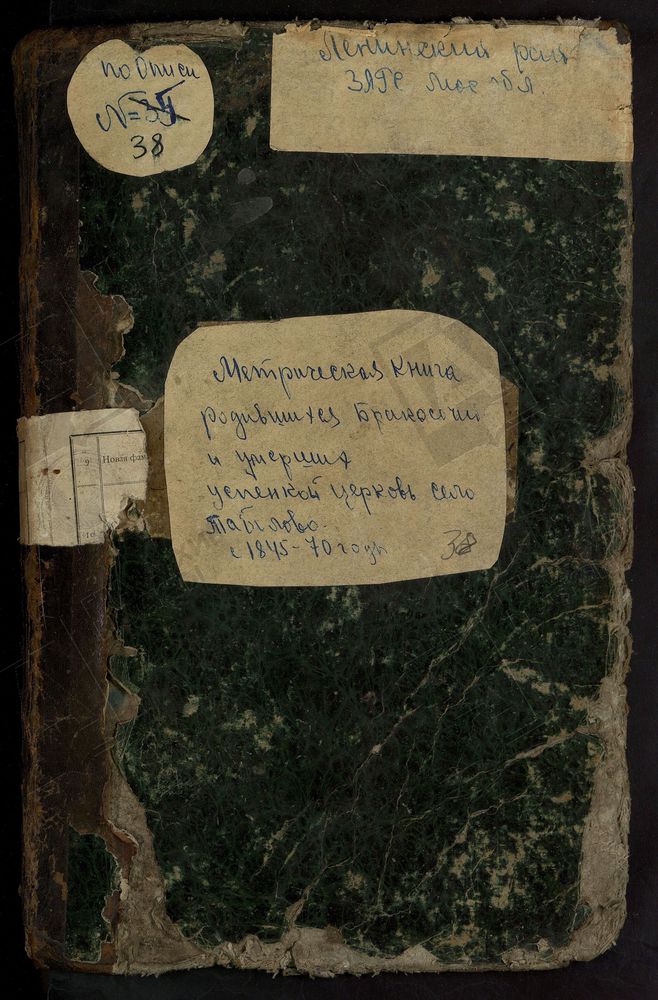 по Описи
№ 38
Ленинский рай
ЗАГС Мос обл.
Метрическая Книга
родившихся Бракосочи
и умерших
успенкой церковь село
Табылово.
с 1845-70 годы
38
9 Новая фам
10